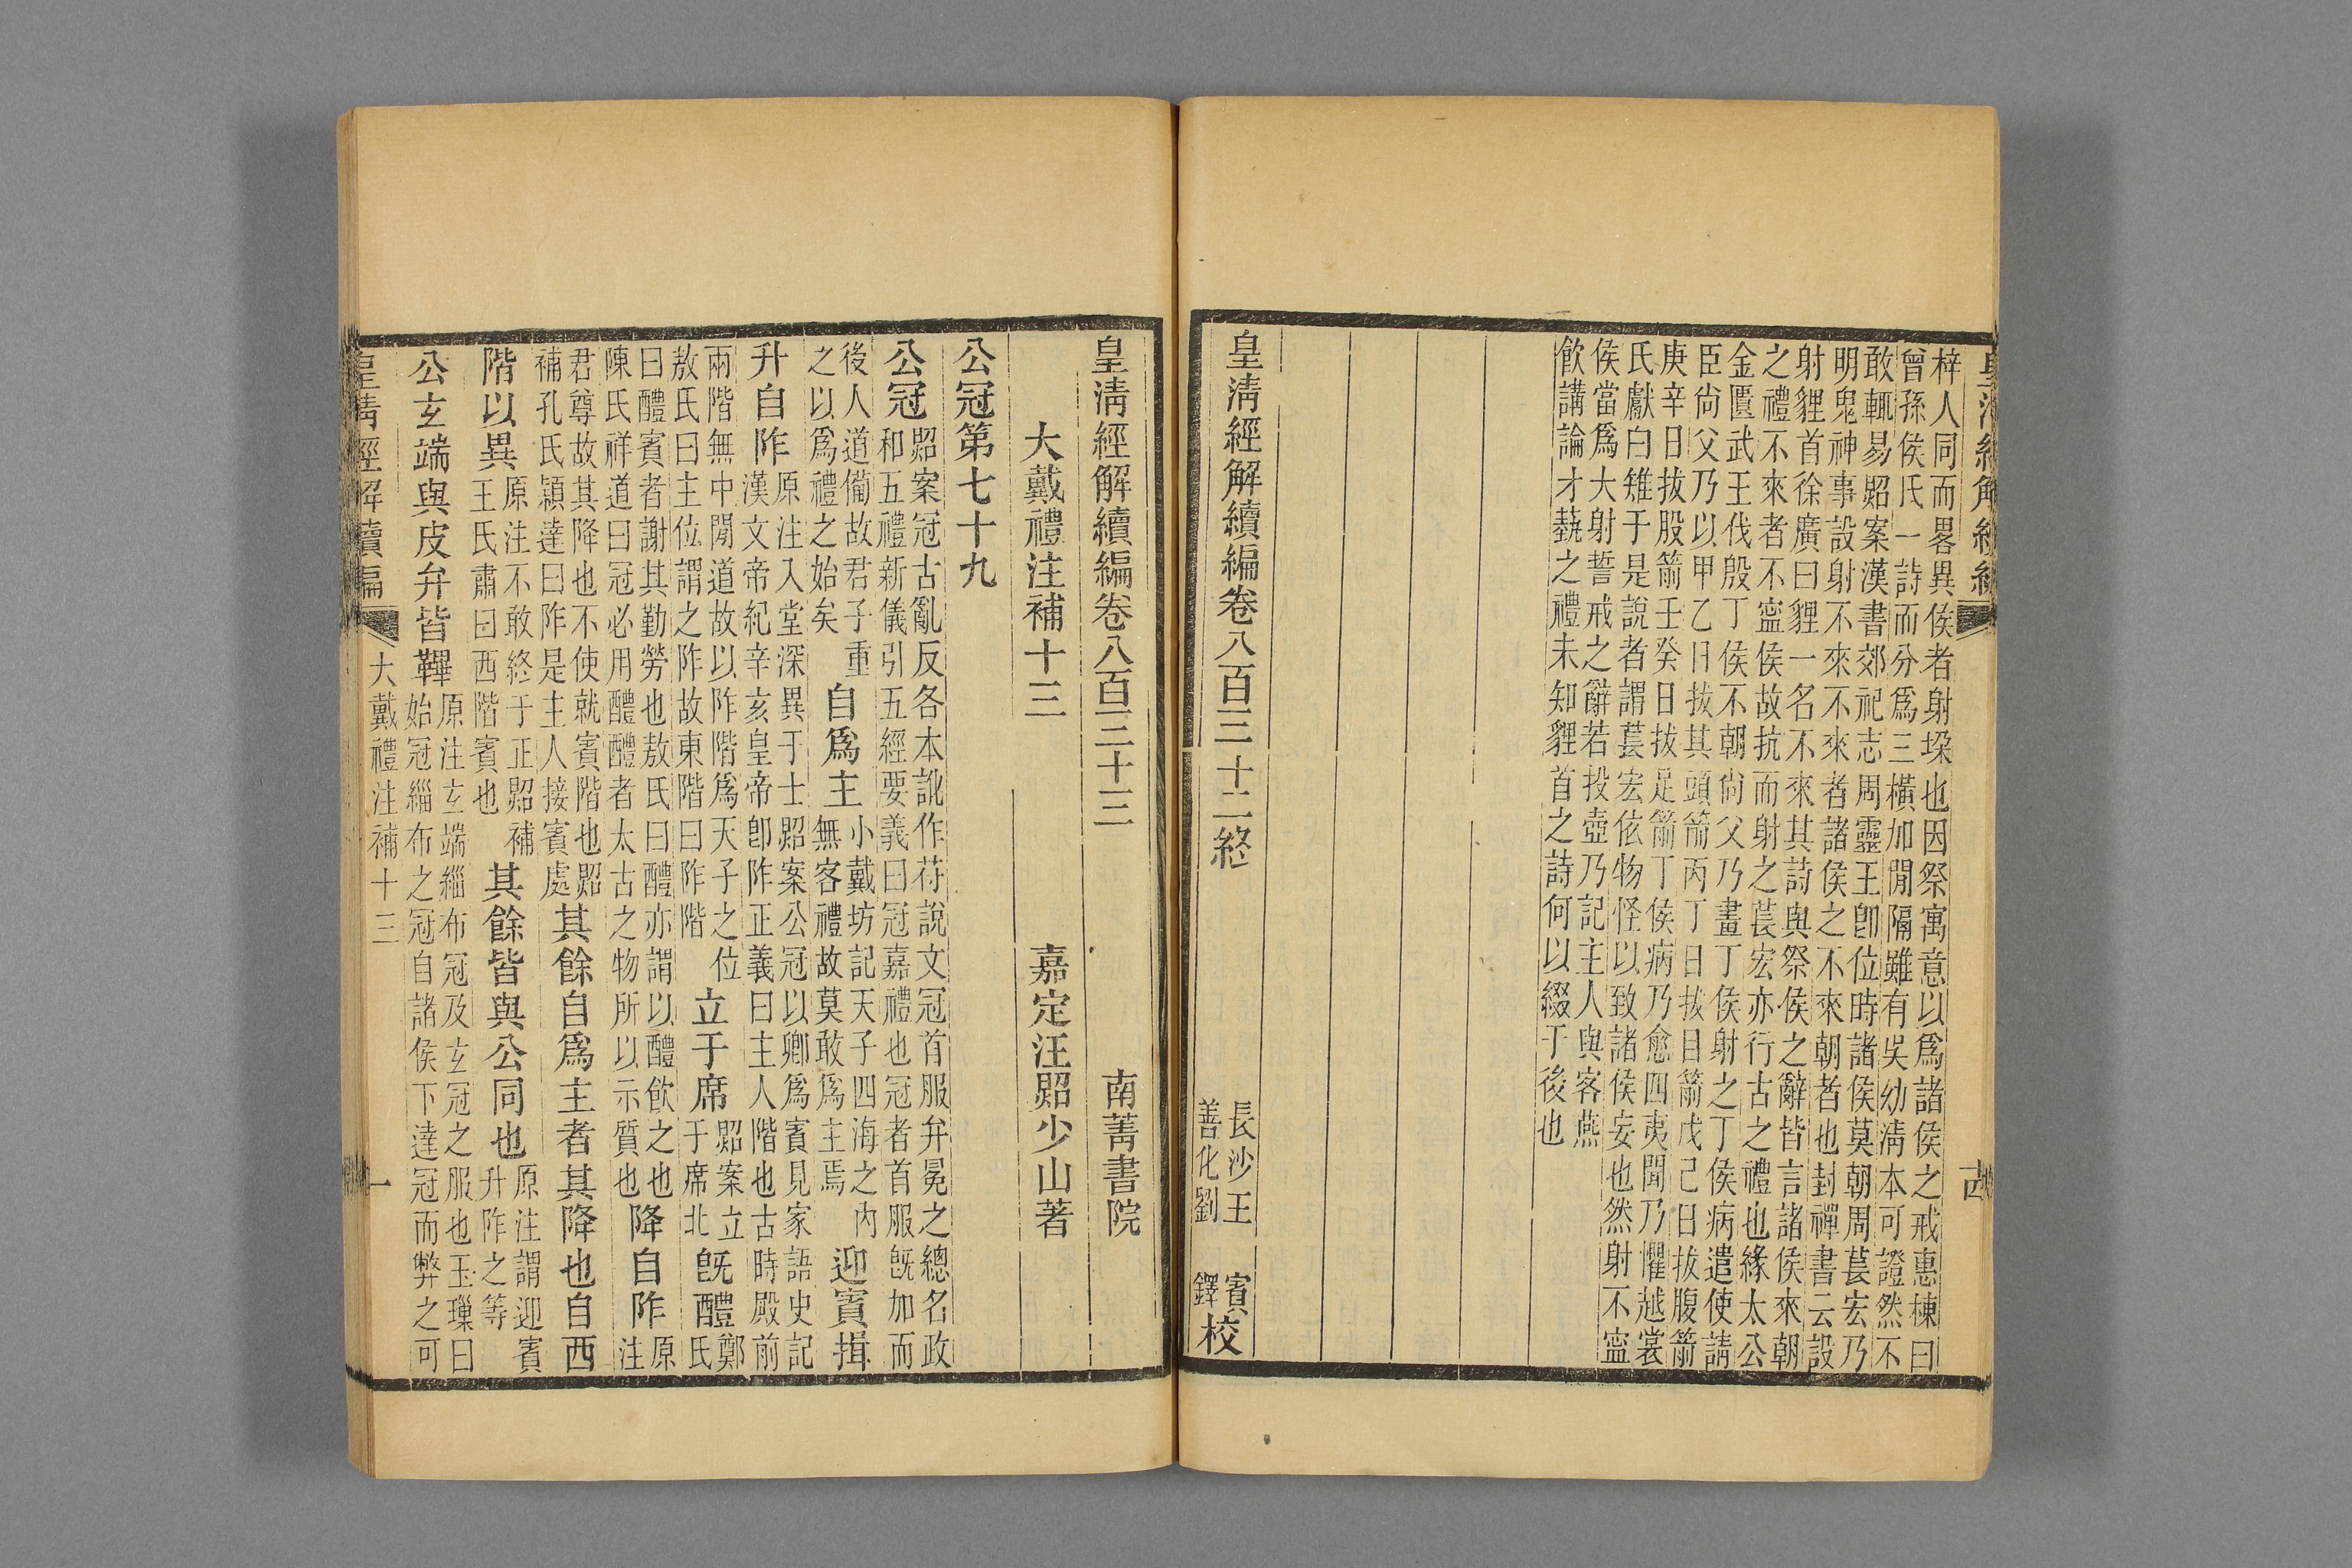 梓人同而畧異侯者射垛也因祭寓意以爲諸侯之戒惠棟曰
曾孫侯氏一詩而分爲三橫加閒隔雖有吳幼淸本可證然不
敢輒易照案漢書郊祀志周靈王卽位時諸侯莫朝周萇宏乃
明鬼神事設射不來不來者諸侯之不來朝者也封禪書云設
射貍首徐廣曰貍一名不來其詩與祭侯之辭皆言諸侯來朝
之禮不來者不寍侯故抗而射之萇宏亦行古之禮也緣太公
金匱武王伐殷丁侯不朝尙父乃畫丁侯射之丁侯病遣使請
臣尙父乃以甲乙日拔其頭箭丙丁日拔目箭戊己日拔腹箭
庚辛日拔股箭壬癸日拔足箭丁侯病乃愈四夷聞乃懼越裳
氏獻白雉于是說者謂萇宏依物怪以致諸侯妄也然射不寍
侯當爲大射誓戒之辭若投壺乃記主人與客燕
飲講論才藝之禮未知貍首之詩何以綴于後也
皇淸經解續編卷八百三十二終
長沙王
善化劉
賓
鐸
校
皇淸經解續編卷八百三十三
南菁書院
大戴禮注補十三
嘉定汪照少山著
公冠第七十九
公冠
照案冠古亂反各本訛作苻說文冠首服弁冕之總名政
和五禮新儀引五經要義曰冠嘉禮也冠者首服旣加而
後人道備故君子重
之以爲禮之始矣
自爲主
小戴坊記天子四海之內
無客禮故莫敢爲主焉
迎賓揖
升自阼
原注入堂深異于士照案公冠以卿爲賓見家語史記
漢文帝紀辛亥皇帝卽阼正義曰主人階也古時殿前
兩階無中閒道故以阼階爲天子之位
敖氏曰主位謂之阼故東階曰阼階
立于席
照案立
于席北
旣醴
鄭
氏
曰醴賓者謝其勤勞也敖氏曰醴亦謂以醴飲之也
陳氏祥道曰冠必用醴醴者太古之物所以示質也
降自阼
原
注
君尊故其降也不使就賓階也照
補孔氏穎達曰阼是主人接賓處
其餘自爲主者其降也自西
階以異
原注不敢終于正照補
王氏肅曰西階賓也
其餘皆與公同也
原注謂迎賓
升阼之等
公玄端與皮弁皆韠
原注玄端緇布冠及玄冠之服也玉璅曰
始冠緇布之冠自諸侯下達冠而弊之可
皇淸經解續編
大戴禮注補十三
一